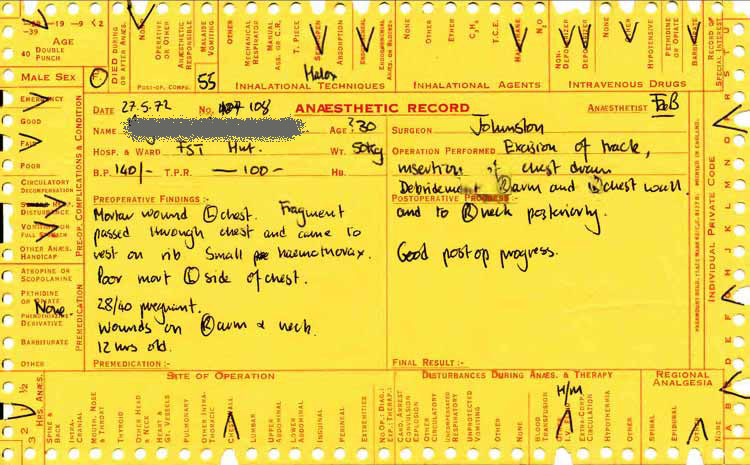 -19 -9 < 2
-39
40 DOUBLE PUNCH
AGE
MALE SEX
DIED DURING OR AFTER ANÆS.
NONE
OPERATIVE OR OTHER
ANÆSTHETIC RESPONSIBLE
MALAISE VOMITING
OTHER
POST-OP. COMPS. 55
MECHANICAL RESPIRATOR
MANUAL ASS. OR C.R.
T. PIECE
ABSORPTION
Halox
INHALATIONAL TECHNIQUES
NONE
OTHER
ETHER
C₃H₆
T.C.E.
N₂O
INHALATIONAL AGENTS
NON-DEPOLARIZER
DEPOLARIZER
NONE
OTHER
HYPOTENSIVE
PETHIDINE OR OPIATE
BARBITURATE
INTRAVENOUS DRUGS
RECORD OF SPECIAL INTEREST
DATE 27.5.72 NO. 108 ANÆSTHETIC RECORD ANÆSTHETIST BoB
NAME AGE ?30 SURGEON Johnston
HOSP. & WARD FST Hut. WT. 50kg OPERATION PERFORMED Excision of track,
B.P. 140/- T.P.R. — 100 — HB. insertion of chest drain
Debridement Ⓡ arm and Ⓛ chest wall
PREOPERATIVE FINDINGS :- POSTOPERATIVE PROGRESS :- and to Ⓡ neck posteriorly.
Mortar wound Ⓛ chest. Fragment
passed through chest and came to
rest on rib. Small haemothorax.
Good post op progress.
Poor movt Ⓛ side of chest.
28/40 pregnant.
Wounds on Ⓡ arm & neck.
12 hrs old.
PREMEDICATION :- FINAL RESULT :-
EMERGENCY
GOOD
FAIR
POOR
CIRCULATORY DECOMPENSATION
DISTURBANCE
VOMITING OR FULL STOMACH
OTHER ANÆS. HANDICAP
PRE-OP. COMPLICATIONS & CONDITION
ATROPINE OR SCOPOLAMINE
PETHIDINE OR OPIATE
None
PHENOTHIAZINE DERIVATIVE
BARBITURATE
OTHER
PREMEDICATION
INDIVIDUAL PRIVATE CODE
SITE OF OPERATION
DISTURBANCES DURING ANÆS. & THERAPY
REGIONAL ANALGESIA
H/M
3 2 1 ½
HRS. ANÆS.
SPINE & BACK
INTRA-CRANIAL
MOUTH, NOSE & THROAT
THYROID
OTHER HEAD & NECK
HEART & GT. VESSELS
PULMONARY
OTHER INTRA-THORACIC
CHEST WALL
LUMBAR
UPPER ABDOMINAL
LOWER ABDOMINAL
INGUINAL
PERINEAL
EXTREMITIES
NO OP. (DIAG.: EXP.: THERAP.)
CARD. ARREST CONVULSION EXPLOSION
OTHER CIRCULATORY
UNCOMPENSATED RESPIRATORY
UNPROTECTED VOMITING
OTHER
NONE
BLOOD TRANSFUSION
EXTRA-CORP. CIRCULATION
HYPOTHERMIA
OTHER
SPINAL
EPIDURAL
OTHER
NONE